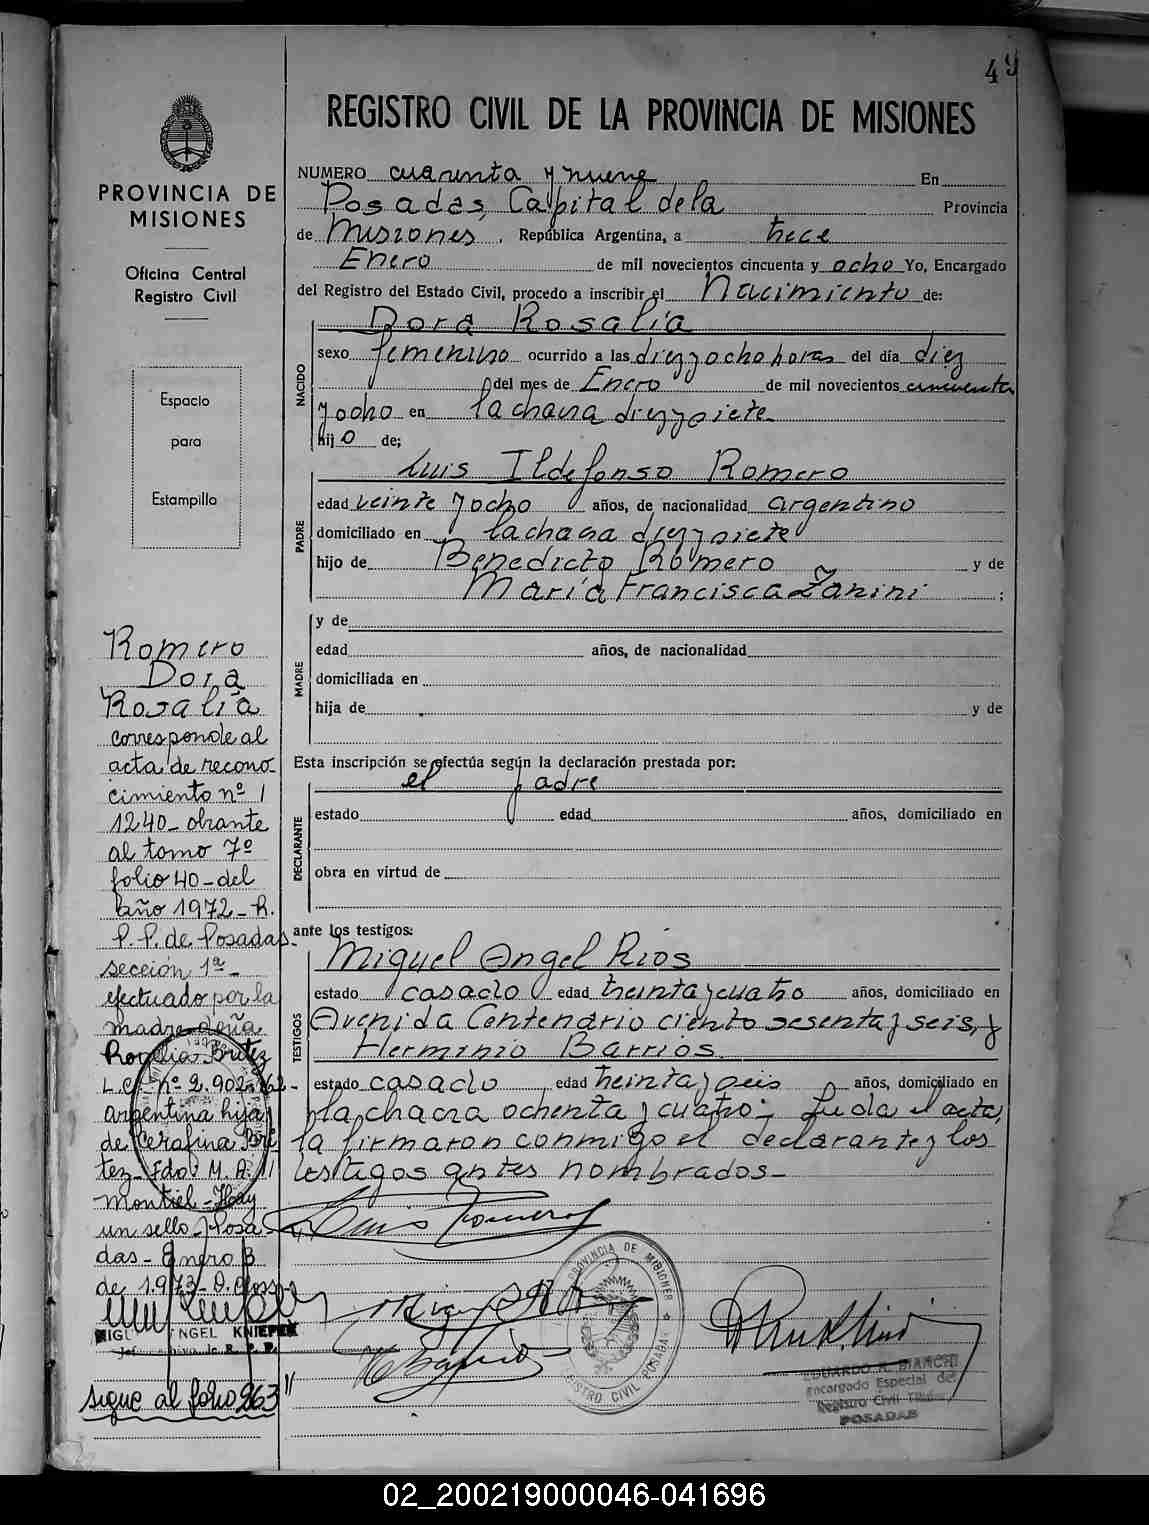 49
REGISTRO CIVIL DE LA PROVINCIA DE MISIONES
NUMERO cuarenta y nueve En
Posadas, Capital de la Provincia
de Misiones, República Argentina, a trece
Enero de mil novecientos cincuenta y ocho Yo, Encargado
del Registro del Estado Civil, procedo a inscribir el Nacimiento de:
NACIDO
Dora Rosalía
sexo femenino ocurrido a las diez y ocho horas del día diez
del mes de Enero de mil novecientos cincuenta
y ocho en la chacra diez y siete
hijo de;
PADRE
Luis Ildefonso Romero
edad veinte y ocho años, de nacionalidad argentino
domiciliado en la chacra diez y siete
hijo de Benedicto Romero y de
María Francisca Zanini ;
MADRE
y de
edad años, de nacionalidad
domiciliada en
hija de y de
Esta inscripción se efectúa según la declaración prestada por:
DECLARANTE
el padre
estado edad años, domiciliado en
obra en virtud de
ante los testigos:
TESTIGOS
Miguel Angel Rios
estado casado edad treinta y cuatro años, domiciliado en
Avenida Centenario ciento sesenta y seis, y
Herminio Barrios
estado casado edad treinta y seis años, domiciliado en
la chacra ochenta y cuatro; Leida el acta,
la firmaron conmigo el declarante y los
testigos antes nombrados-
Luis Romero
PROVINCIA DE MISIONES
REGISTRO CIVIL POSADAS
EDUARDO R. BIANCHI
Encargado Especial del
Registro Civil
POSADAS
PROVINCIA DE
MISIONES
Oficina Central
Registro Civil
Espacio
para
Estampilla
Romero
Dora
Rosalía
corresponde al
acta de recono-
cimiento nº
1240- obrante
al tomo 7º
folio 40- del
año 1972- R.
P. P. de Posadas-
sección 1ª-
efectuado por la
madre doña
Rogelia Britez
L.C. nº 2.902.
argentina hija
de Cerafina Bri-
tez- Fdo: M. A.
Montiel- Hay
un sello- Posa-
das- Enero 3
de 1973- D.
ANGEL KNIEPER
sigue al folio 263
02_200219000046-041696